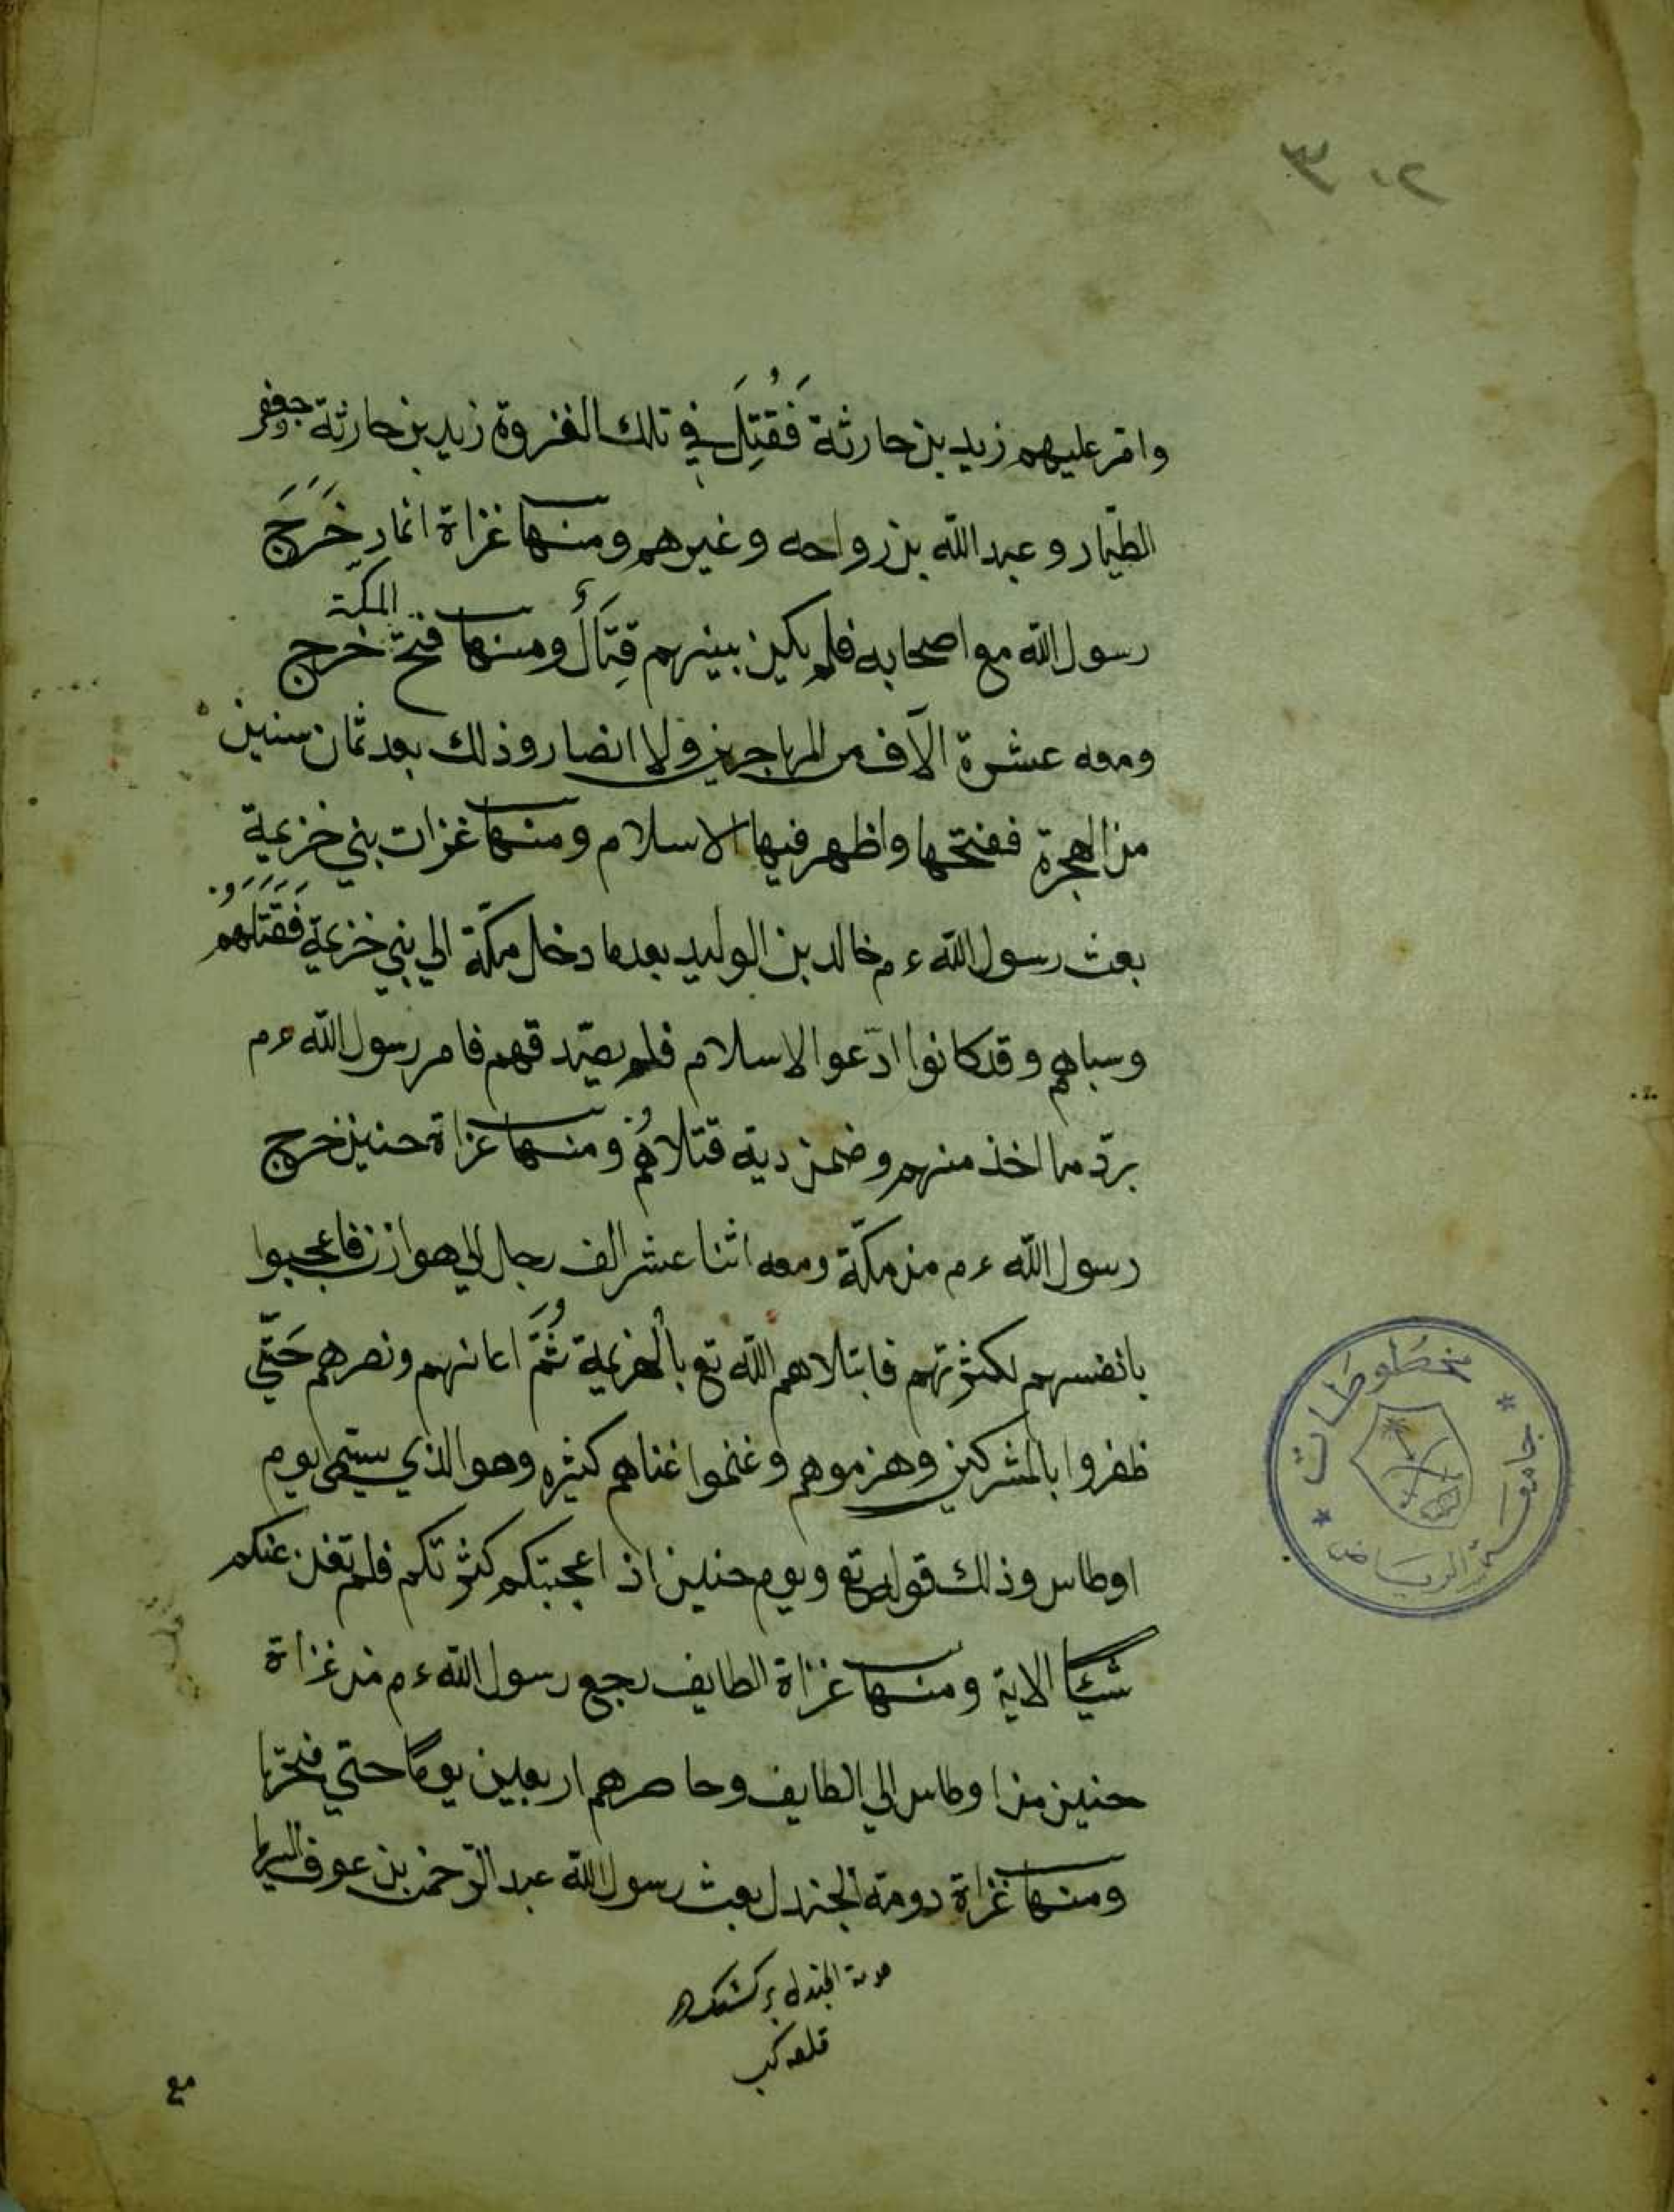 وامر عليهم زيد بن حارثة فَقُتِلَ في تلك الغزوة زيد بن حارثة وجعفر
الطيّار وعبد اللّه بن رواحه وغيرهم ومنها غزاة انمار خَرَجَ
رسول اللّه مع اصحابه فلم يكن بينهم قِتَالٌ ومنها فتح المكّة خرج
ومعه عشرة آلاف من المهاجرين ولا انصار وذلك بعد ثمان سنين
من الهجرة ففتحها واظهر فيها الاسلام ومنها غزات بني خزيمة
بعث رسول اللّه ءم خالد بن الوليد بعدما دخل مكّة الي بني خزيمة فَقَتَلَهُمْ
وسباهم وقد كانوا ادّعوا الاسلام فلم يصّدقهم فامر رسول اللّه ءم
بردّ ما اخذ منهم وضمن دية قتلاهُمْ ومنها غزاة حنين خرج
رسول اللّه ءم من مكّة ومعه اثنا عشر الف رجل الي هوازن فاعجبوا
بانفسهم لكثرتهم فابتلاهم اللّه تع بالهزيمة ثُمَّ اعانهم ونصرهم حَتّي
ظفروا بالمشركين وهزموهم وغنموا غناهم كثيره وهو الذي سيتمي يوم
اوطاس وذلك قوله تع ويوم حنين اذ اعجبتكم كثرتكم فلم تغن عنكم
شيئًا الاية ومنها غزاة الطايف رجع رسول اللّه ءم من غزاة
حنين من اوطاس الي الطايف وحاصرهم اربعين يومًا حتي فتحها
ومنها غزاة دومة الجندل بعث رسول اللّه عبد الرّحمن بن عوف اليها
دومة الجندل
قلعه
مع
٢٠٣
مخطوطات
جامعة الرياض